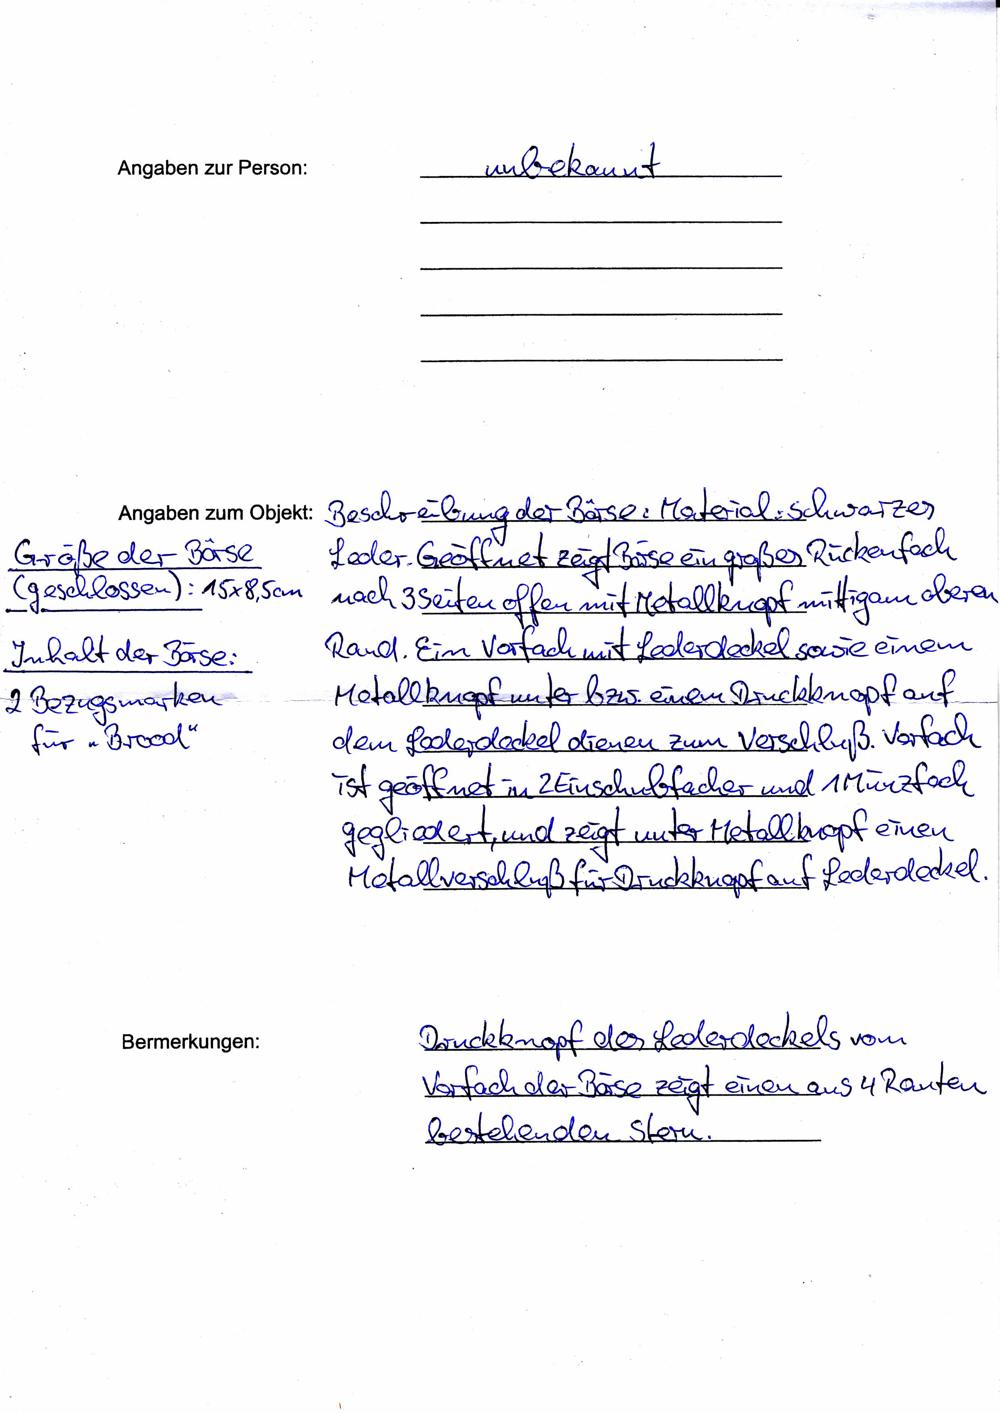 Angaben zur Person: unbekannt
Angaben zum Objekt: Beschreibung der Börse: Material: schwarzes
Leder. Geöffnet zeigt Börse ein großes Rückenfach
nach 3 Seiten offen mit Metallknopf mittig am oberen
Rand. Ein Vorfach mit Lederdeckel sowie einem
Metallknopf unter bzw. einen Druckknopf auf
dem Lederdeckel dienen zum Verschluß. Vorfach
ist geöffnet in 2 Einschubfächer und 1 Münzfach
gegliedert, und zeigt unter Metallknopf einen
Metallverschluß für Druckknopf auf Lederdeckel.
Größe der Börse
(geschlossen): 15x8,5cm
Inhalt der Börse:
2 Bezugsmarken
für "Brood"
Bermerkungen: Druckknopf des Lederdeckels vom
Vorfach der Börse zeigt einen aus 4 Rauten
bestehenden Stern.